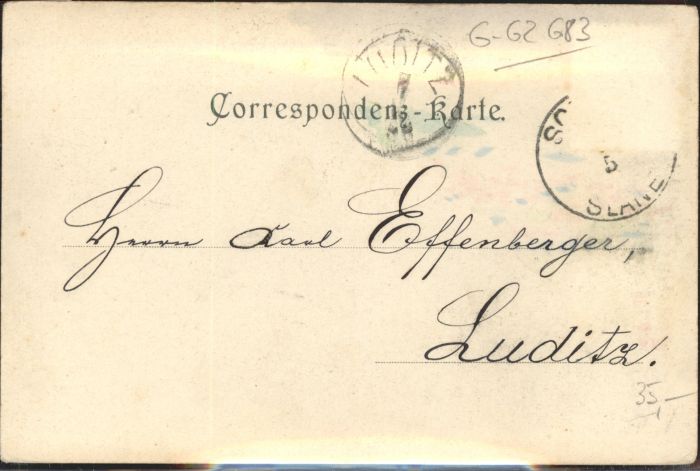 G-GZ G83
LUDITZ
Correspondenz-Karte.
5
SLANÉ
Herrn Karl Effenberger,
Luditz.
35,-